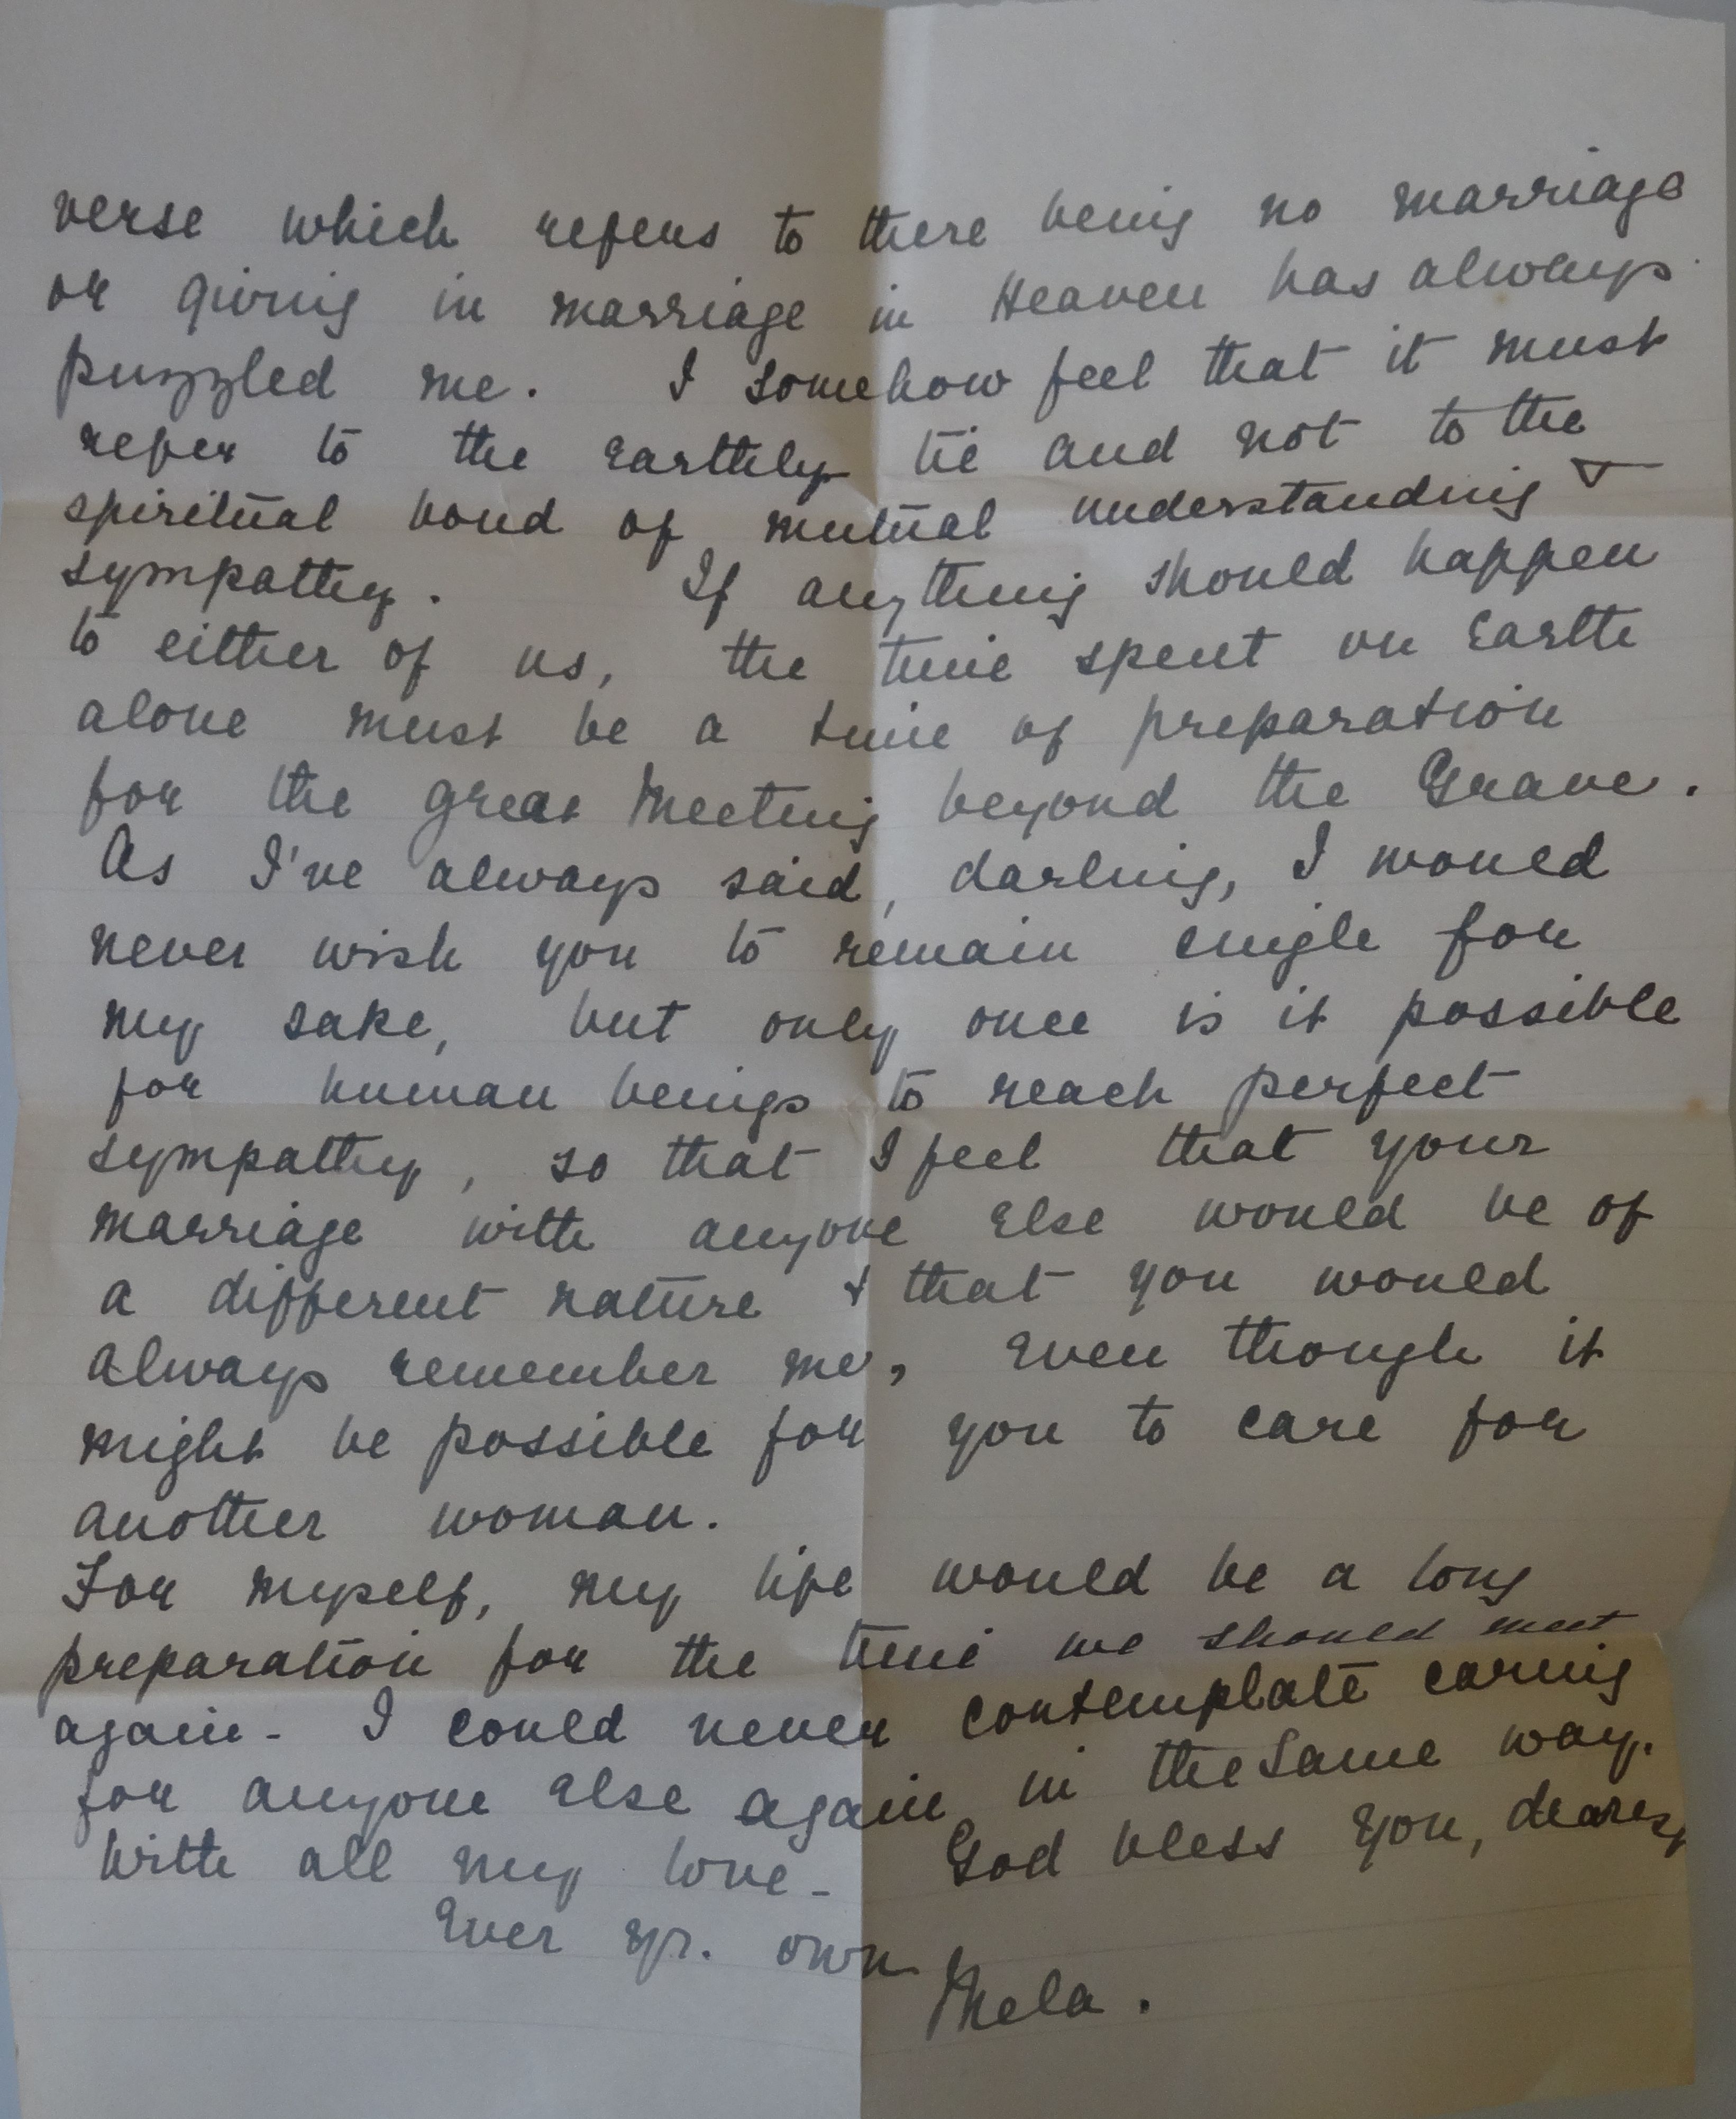 verse which refers to there being no marriage
or giving in marriage in Heaven has always
puzzled me. I somehow feel that it must
refer to the earthly tie and not to the
spiritual bond of mutual understanding &
sympathy. If anything should happen
to either of us, the time spent on Earth
alone must be a time of preparation
for the great Meeting beyond the Grave.
As I've always said, darling, I would
never wish you to remain single for
my sake, but only once is it possible
for human beings to reach perfect
sympathy, so that I feel that your
marriage with anyone else would be of
a different nature & that you would
always remember me, even though it
might be possible for you to care for
another woman.
For myself, my life would be a long
preparation for the time we should meet
again - I could never contemplate caring
for anyone else again in the same way.
With all my love - God bless you, dearest
Ever yr. own
Mela.